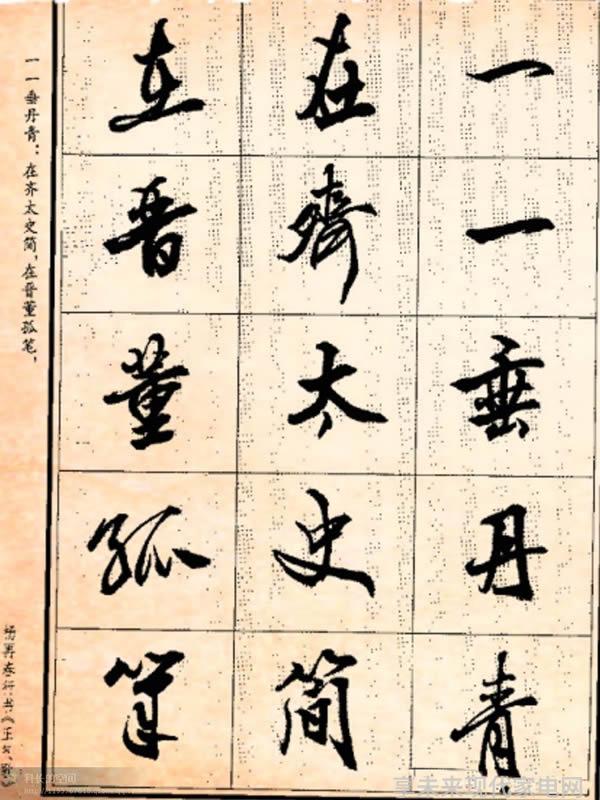 一一垂丹青
在齊太史簡
在晋董孤筆
一一垂丹青：在齐太史简，在晋董孤笔，
杨再春行书《正气歌》
科长的空间
享未来现代家电网